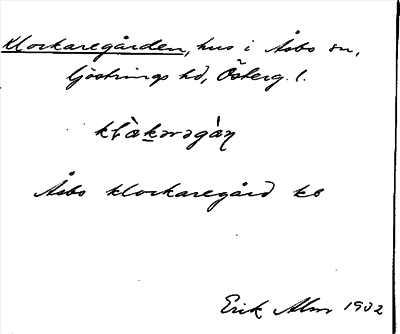 Klockaregården, hus i Åsbo sn,
Göstrings hd, Österg. l.
Åsbo klockaregård kb
Erik Alm 1932